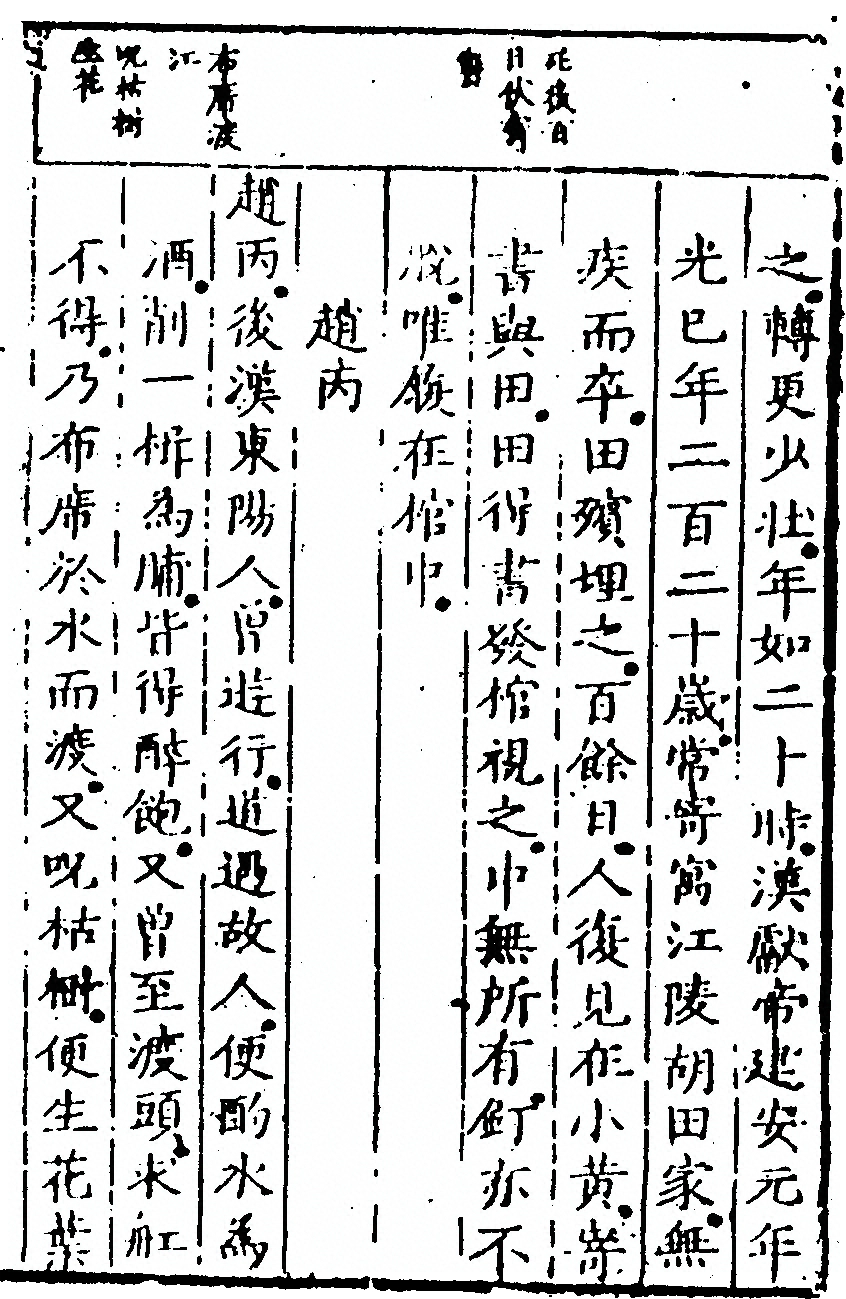 死後百
日伏寄
書
布席渡
江
呪枯樹
生花
之轉更少壯年如二十時漢獻帝建安元年
光已年二百二十歲常寄寓江陵胡田家無
疾而卒田殯埋之百餘日人復見在小黃寄
書與田田得書發棺視之中無所有釘亦不
脫唯履在棺中
趙丙
趙丙後漢東陽人曾遊行道遇故人便酌水為
酒削一柹為脯皆得醉飽又曾至渡頭求舡
不得乃布席於水而渡又呪枯樹便生花葉